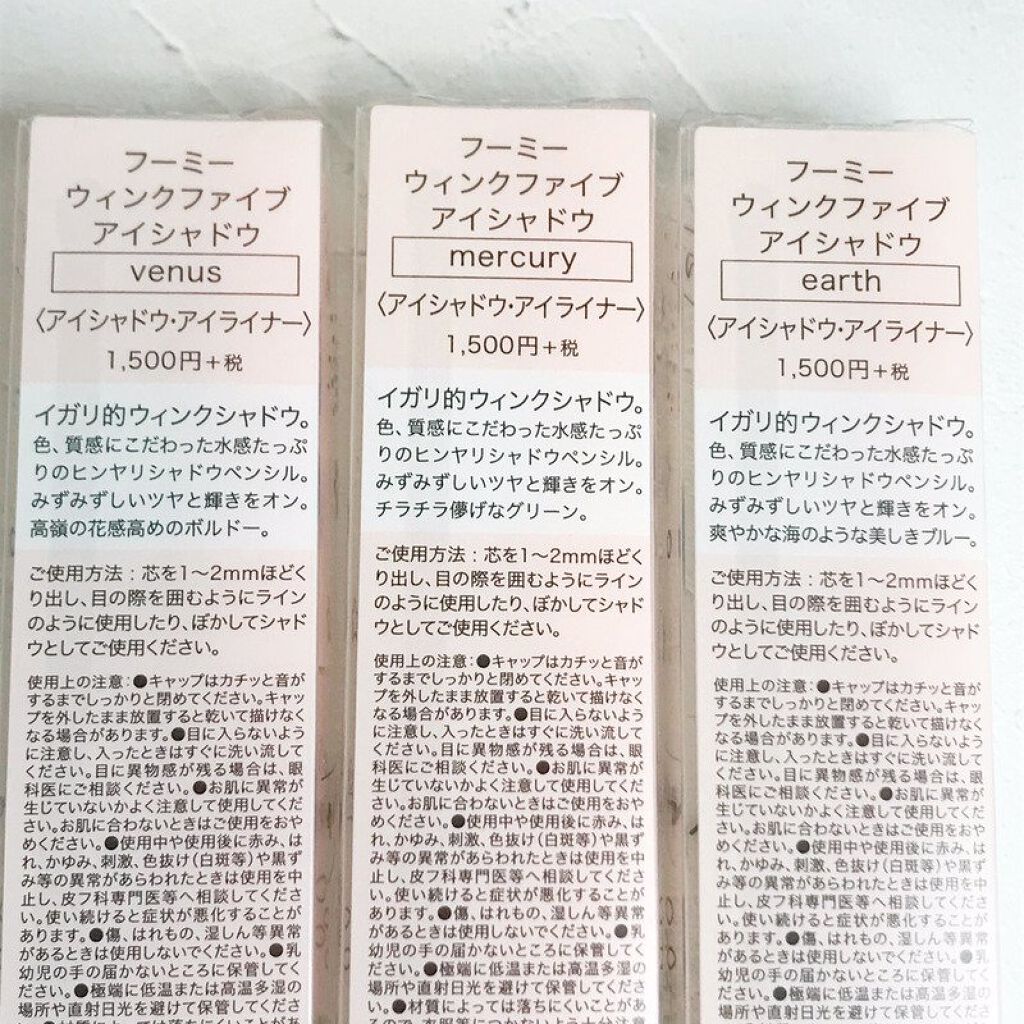 フーミー
ウィンクファイブ
アイシャドウ
venus
〈アイシャドウ・アイライナー〉
1,500円+税
イガリ的ウィンクシャドウ。
色、質感にこだわった水感たっぷ
りのヒンヤリシャドウペンシル。
みずみずしいツヤと輝きをオン。
高嶺の花感高めのボルドー。
ご使用方法：芯を1〜2mmほどく
り出し、目の際を囲むようにライン
のように使用したり、ぼかしてシャド
ウとしてご使用ください。
使用上の注意：●キャップはカチッと音が
するまでしっかりと閉めてください。キャッ
プを外したまま放置すると乾いて描けなく
なる場合があります。●目に入らないよう
に注意し、入ったときはすぐに洗い流して
ください。目に異物感が残る場合は、眼
科医にご相談ください。●お肌に異常が
生じていないかよく注意して使用してくだ
さい。お肌に合わないときはご使用をおや
めください。●使用中や使用後に赤み、は
れ、かゆみ、刺激、色抜け(白斑等)や黒ず
み等の異常があらわれたときは使用を中
止し、皮フ科専門医等へ相談してくださ
い。使い続けると症状が悪化することが
あります。●傷、はれもの、湿しん等異常
があるときは使用しないでください。●乳
幼児の手の届かないところに保管してく
ださい。●極端に低温または高温多湿の
場所や直射日光を避けて保管してくださ
い。●材質によっては落ちにくいことがあ
フーミー
ウィンクファイブ
アイシャドウ
mercury
〈アイシャドウ・アイライナー〉
1,500円+税
イガリ的ウィンクシャドウ。
色、質感にこだわった水感たっぷ
りのヒンヤリシャドウペンシル。
みずみずしいツヤと輝きをオン。
チラチラ儚げなグリーン。
ご使用方法：芯を1〜2mmほどく
り出し、目の際を囲むようにライン
のように使用したり、ぼかしてシャド
ウとしてご使用ください。
使用上の注意：●キャップはカチッと音が
するまでしっかりと閉めてください。キャッ
プを外したまま放置すると乾いて描けなく
なる場合があります。●目に入らないよう
に注意し、入ったときはすぐに洗い流して
ください。目に異物感が残る場合は、眼
科医にご相談ください。●お肌に異常が
生じていないかよく注意して使用してくだ
さい。お肌に合わないときはご使用をおや
めください。●使用中や使用後に赤み、は
れ、かゆみ、刺激、色抜け(白斑等)や黒ず
み等の異常があらわれたときは使用を中
止し、皮フ科専門医等へ相談してくださ
い。使い続けると症状が悪化することが
あります。●傷、はれもの、湿しん等異常
があるときは使用しないでください。●乳
幼児の手の届かないところに保管してく
ださい。●極端に低温または高温多湿の
場所や直射日光を避けて保管してくださ
い。●材質によっては落ちにくいことがあ
るので、衣服等につかないよう十分注意
フーミー
ウィンクファイブ
アイシャドウ
earth
〈アイシャドウ・アイライナー〉
1,500円+税
イガリ的ウィンクシャドウ。
色、質感にこだわった水感たっぷ
りのヒンヤリシャドウペンシル。
みずみずしいツヤと輝きをオン。
爽やかな海のような美しきブルー。
ご使用方法：芯を1〜2mmほどく
り出し、目の際を囲むようにライン
のように使用したり、ぼかしてシャド
ウとしてご使用ください。
使用上の注意：●キャップはカチッと音が
するまでしっかりと閉めてください。キャッ
プを外したまま放置すると乾いて描けなく
なる場合があります。●目に入らないよう
に注意し、入ったときはすぐに洗い流して
ください。目に異物感が残る場合は、眼
科医にご相談ください。●お肌に異常が
生じていないかよく注意して使用してくだ
さい。お肌に合わないときはご使用をおや
めください。●使用中や使用後に赤み、は
れ、かゆみ、刺激、色抜け(白斑等)や黒ず
み等の異常があらわれたときは使用を中
止し、皮フ科専門医等へ相談してくださ
い。使い続けると症状が悪化することが
あります。●傷、はれもの、湿しん等異常
があるときは使用しないでください。●乳
幼児の手の届かないところに保管してく
ださい。●極端に低温または高温多湿の
場所や直射日光を避けて保管してくださ